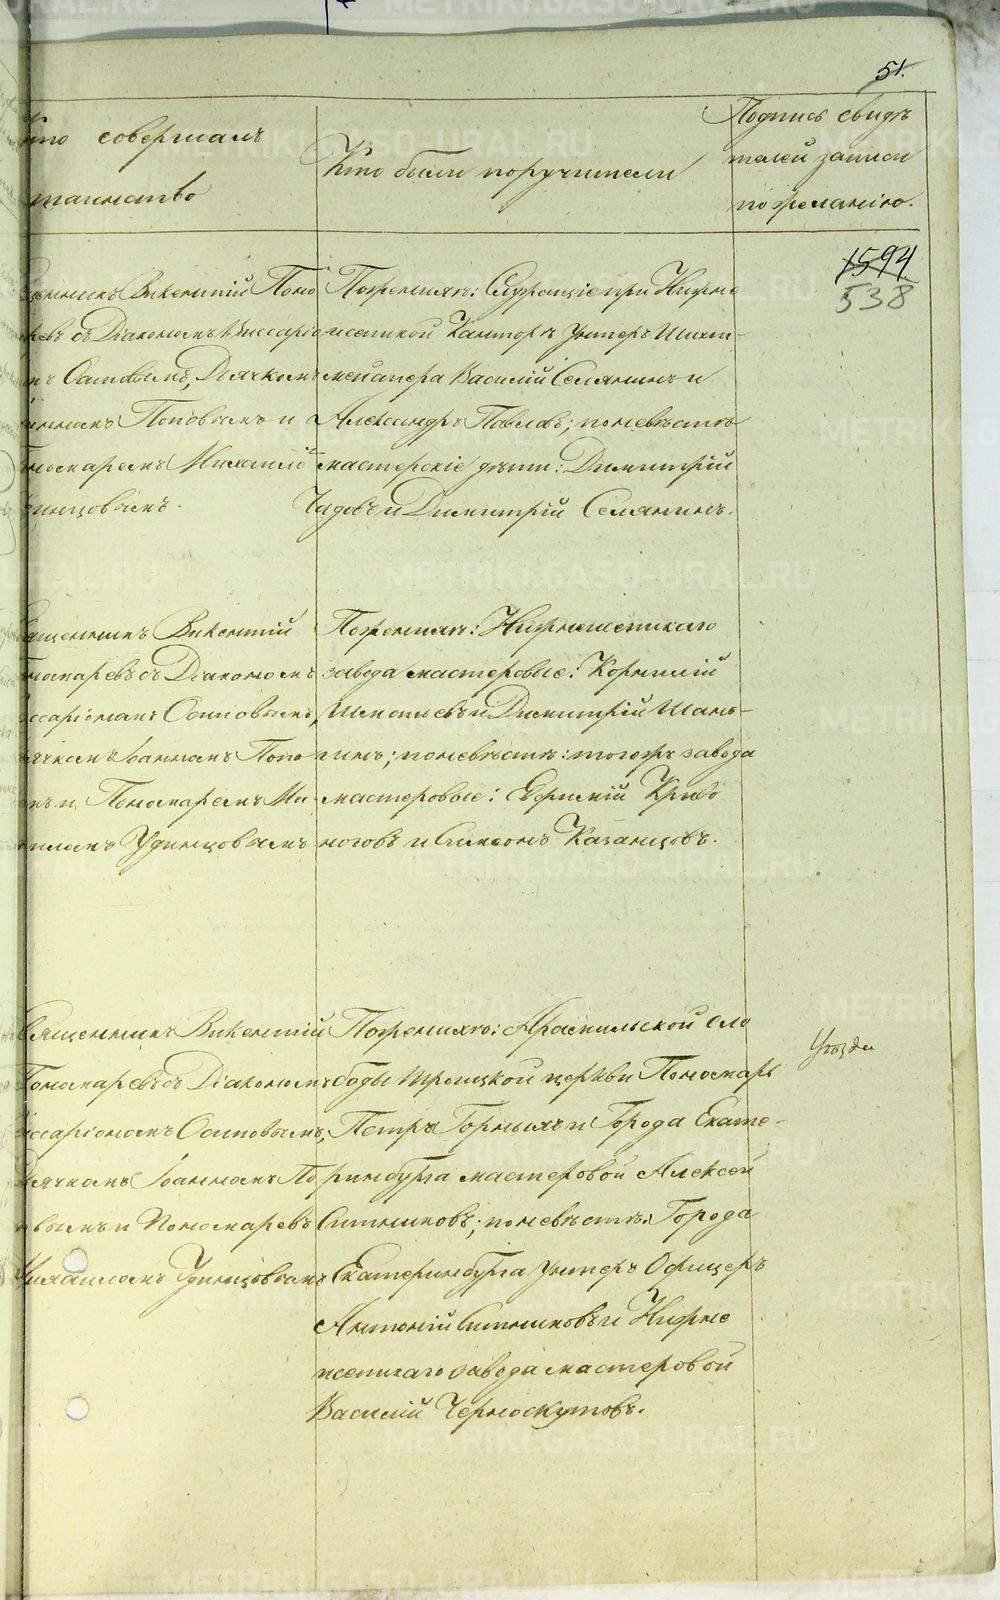 51.
Кто совершалъ
таинство
Кто были поручители
Подпись свидѣ
телей записи
по желанію.
1594
538
Священникъ Викентій Поно
ревъ съ Діакономъ Виссаріо
Осиповымъ, Дьячкомъ
Іоанномъ Поповымъ и
Пономаремъ Михаило
Удинцовымъ.
По женихѣ: Служащіе при Нижне
исетской Конторѣ Унтеръ Шихт-
мейстера Василій Селянинъ и
Александръ Павловъ; по невѣстѣ
мастерскіе дѣти: Димитрій
Чадовъ и Димитрій Селянинъ.
Священникъ Викентій
Пономаревъ съ Діакономъ
Виссаріономъ Осиповымъ,
Дьячкомъ Іоанномъ Попо
и Пономаремъ Ми
хаиломъ Удинцовымъ
По женихѣ: Нижнеисетскаго
завода мастеровые: Корнилій
и Димитрій Шань-
гинъ; по невѣстѣ: тогожъ завода
мастеровые: Евгеній Криво
ноговъ и Симеонъ Казанцовъ.
Священникъ Викентій
Пономаревъ съ Діакономъ
Виссаріономъ Осиповымъ,
Дьячкомъ Іоанномъ По
повымъ и Пономаревъ
Михаиломъ Удинцовымъ
По женихѣ: Арамильской сло
боды Троицкой церкви Пономарь
Петръ Горныхъ и Города Екате-
ринбурга мастеровой Алексей
Ситниковъ; по невѣстѣ: Города
Екатеринбурга Унтеръ Офицеръ
Антоній Ситниковъ и Нижне
исетскаго завода мастеровой
Василій Черноскутовъ.
METRIKI.GASO-URAL.RU